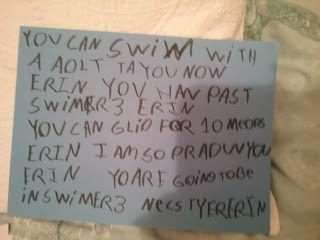 YOU CAN SWIM WITH
A AOLT TA YOU NOW
ERIN YOU HAV PAST
SWIMER3 ERIN
YOU CAN GLID FOR 10 MEORS
ERIN I AM SO PRADUV YOU
ERIN YOARE GOING TO BE
IN SWIMER3 NECST YER ERIN